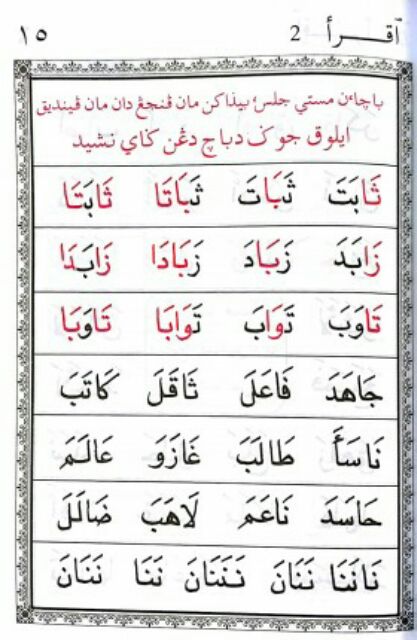 اقرأ 2 ١٥
باچاءن مستي جلس؛ بيذاكن مان ڤنجڠ دان مان ڤينديق
ايلوق جوک دباچ دڠن کاي نشيد
ثَابَتَ ثَبَاتَ ثَبَاتَا ثَابَتَا
زَابَدَ زَبَادَ زَبَادَا زَابَدَا
تَاوَبَ تَوَابَ تَوَابَا تَاوَبَا
جَاهَدَ فَاعَلَ ثَاقَلَ كَاتَبَ
نَاسَأَ طَالَبَ غَازَوَ عَالَمَ
حَاسَدَ نَاعَمَ لَاهَبَ ضَالَلَ
نَانَنَا نَنَانَ نَنَنَانَ نَنَا نَنَانَ